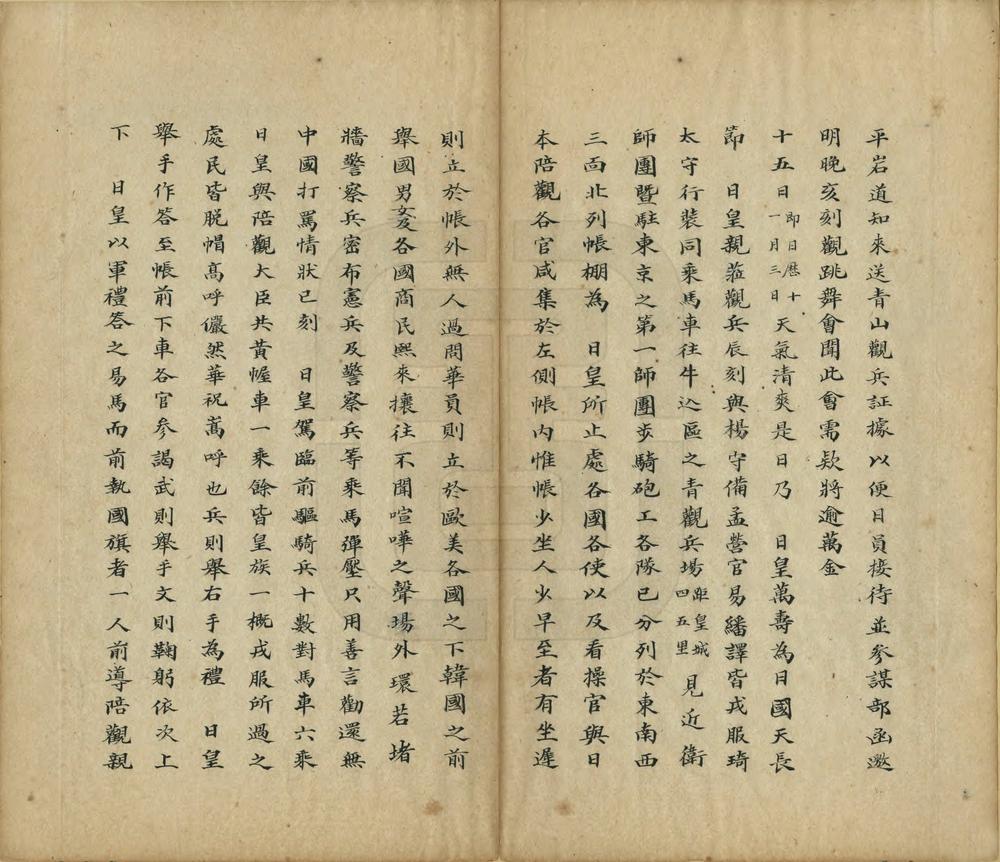 平岩道知來送青山觀兵証據以便日員接待並參謀部函邀
明晚亥刻觀跳舞會聞此會需欵將逾萬金
十五日即日歷十一月三日天氣清爽是日乃　日皇萬壽為日國天長
節　日皇親蒞觀兵辰刻與楊守備孟營官易繙譯皆戎服琦
太守行裝同乘馬車往牛込區之青觀兵場距皇城四五里見近衛
師團暨駐東京之第一師團步騎砲工各隊已分列於東南西
三面北列帳棚為　日皇所止處各國各使以及看操官與日
本陪觀各官咸集於左側帳內惟帳少坐人少早至者有坐遲
則立於帳外無人過問華員則立於歐美各國之下韓國之前
舉國男女及各國商民熙來攘往不聞喧嘩之聲場外環若堵
牆警察兵密布憲兵及警察兵等乘馬彈壓只用善言勸還無
中國打罵情狀已刻　日皇駕臨前驅騎兵十數對馬車六乘
日皇與陪觀大臣共黃幄車一乘餘皆皇族一概戎服所過之
處民皆脫帽高呼儼然華祝嵩呼也兵則舉右手為禮　日皇
舉手作答至帳前下車各官參謁武則舉手文則鞠躬依次上
下　日皇以軍禮答之易馬而前執國旗者一人前導陪觀親